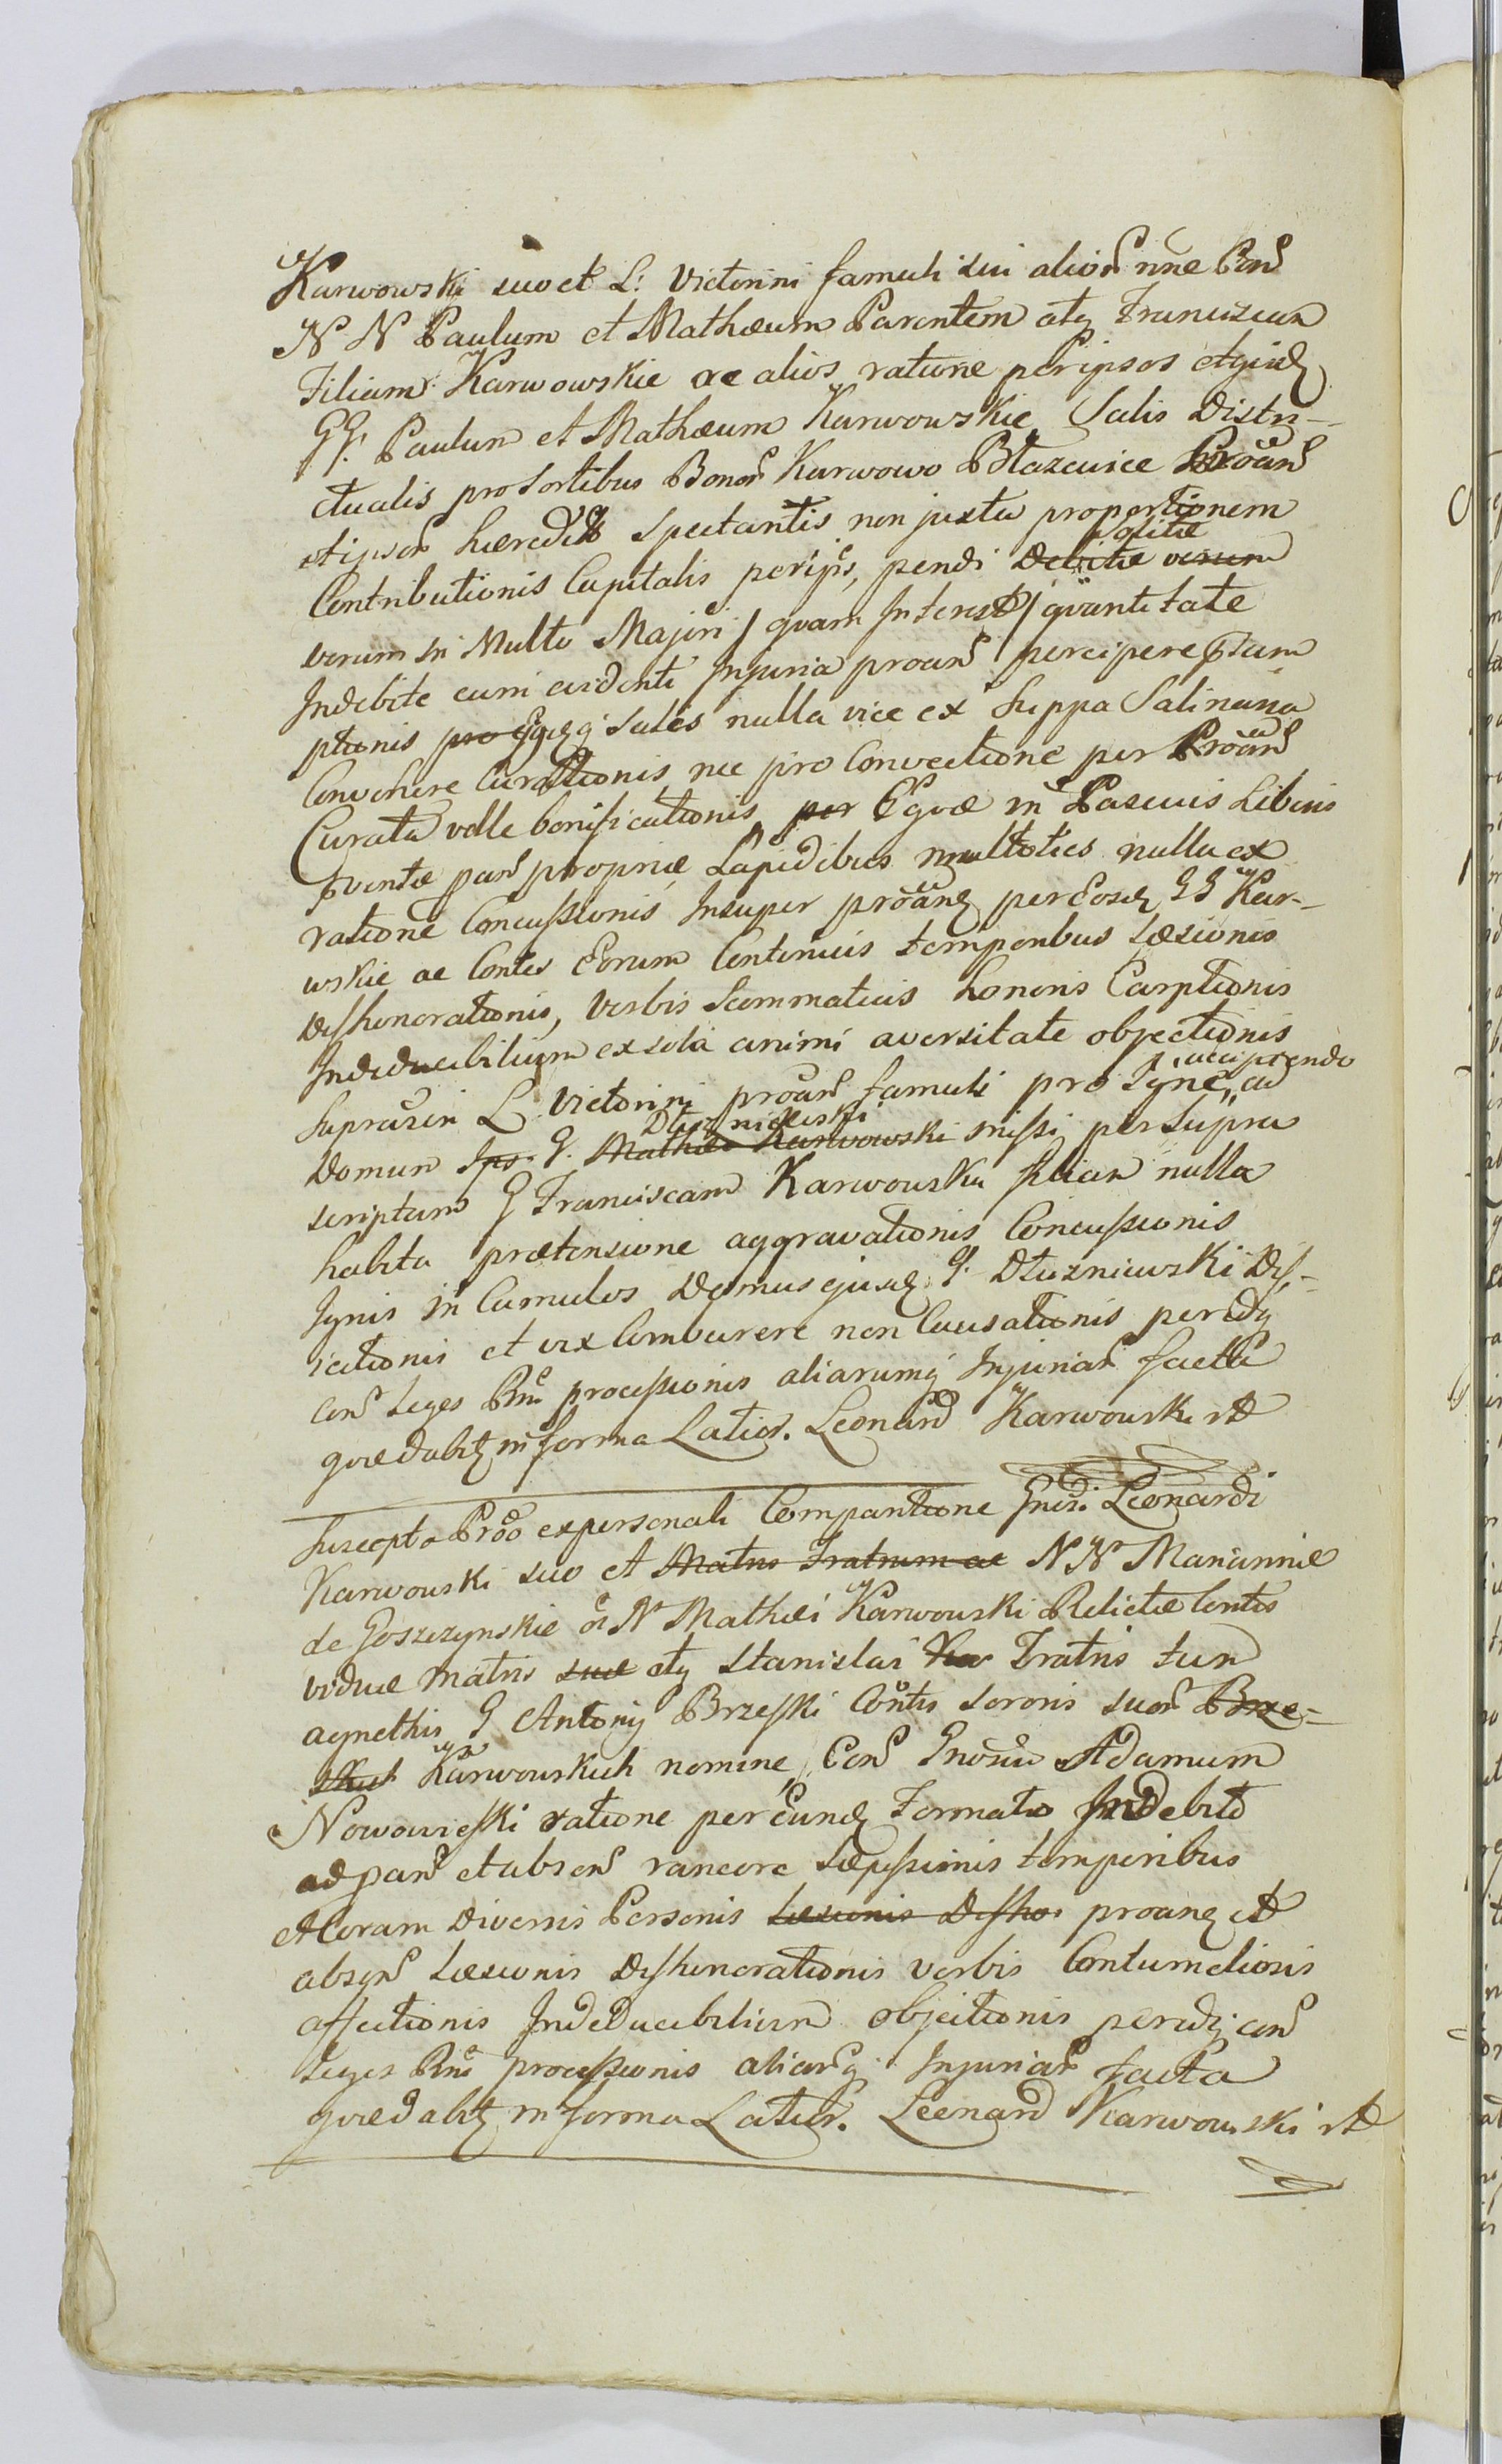 Karwowski suo et L. Victorini famuli sui alior nne Con
N N Paulum et Mathæum Parentem atq Franciscam
Filiam Karwowskie ac alios ratione per ipsos etqiudz
GG. Paulum et Mathæum Karwowskie Salis Distri-
ctualis pro Sortibus Bonor Karwowo Błazeuice Proan
et ipsor hæredit spectantis non juxta proportionem
Contributionis Capitalis per ips, pendi solitæ Debitæ verum
verum in Multo Majori / quam Interest / quantitate
Indebite cum evidenti Injuria proan percipere
ptionis pro Salis nulla vice ex Suppa Salinaria
Convehere Curationis, nec pro Convectione per Proan
Curata velle bonificationis, per Eqvæ in Pascuis Liberis
propriæ Lapidibus multoties nulla ex
ratione Concussionis Insuper proanq per Eosdz GG Kar-
wskie ac Contes Eorum Continuis temporibus Læsionis
Dishonorationis, Verbis Scommaticis honoris Carptionis
Indeducibilium ex sola animi aversitate objectionis
L. Victorini proan famuli pro Igne, accipiendo ad
Domum Ips. G. Dłuzniewski Mathæi Karwowski missi per Supra
scriptam G Franciscam Karwowska filiam nulla
habita prætensione aggravationis Concussionis
Ignis in Cumulos Domus ejusdz G. Dłuzniewski Dis-
ictionis et vix Comburere non Causationis peradz
con Leges Rni processionis aliarumq Injuriar facta
quædabitz in forma Latior. Leonard Karwowski

Suscepto Proo expersonali Comparitione Gnrsi Leonardi
Karwowski suo et Matris Fratrum ac N N Marianne
de Goszczynskie N Mathei Karwowski Relictæ Contis
viduæ Matris suæ atq Stanislai Kar Fratris tum
agnethis G Antonij Brzeski Contis sororis suor Brze-
skich Karwowskich nomine, Con Gnosum Adamum
Nowowieski ratione per eundz Formato Indebito
ad pan et absen rancore sæpissimis temporibus
et Coram Diversis Personis Læsionis Disho proanq et
absen Læsionis Dishonorationis verbis Contumeliosis
affectionis Indeducibilium objectionis peradz con
Leges Rni processionis aliarq Injuriar facta
quædabitz in forma Latior. Leonard Karwowski